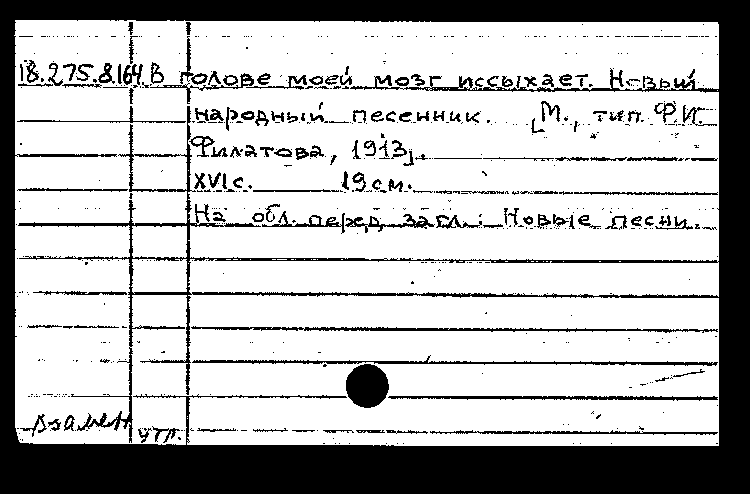 18.275.8.164 В голове моей мозг иссыхает. Новый
народный песенник. [М., тип. Ф.И.
Филатова, 1913].
XVI с. 19 см.
На обл. перед загл.: Новые песни.
взамен утр.